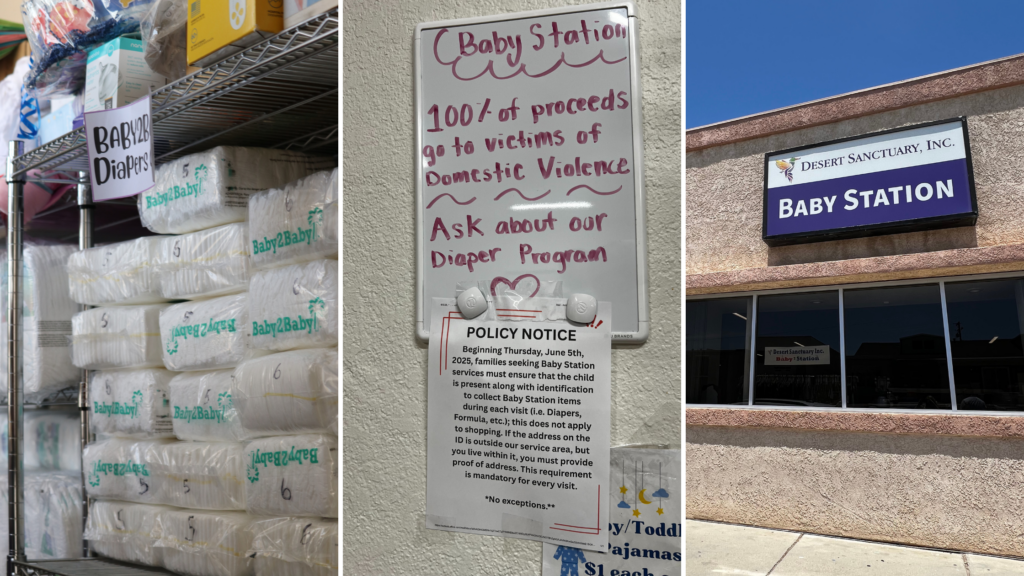 BABY2B
Diapers
5
Baby2Baby
6
Baby2Baby
5
6
Baby2Baby
5
Baby2Baby
6
Baby2Baby
Baby2Baby
Baby2Baby
5
5
Baby2Baby
6
5
5
Baby Station
100% of proceeds
go to victims of
Domestic Violence
Ask about our
Diaper Program
BRANDS
POLICY NOTICE
Beginning Thursday, June 5th,
2025, families seeking Baby Station
services must ensure that the child
is present along with identification
to collect Baby Station items
during each visit (i.e. Diapers,
Formula, etc.); this does not apply
to shopping. If the address on the
ID is outside our service area, but
you live within it, you must provide
proof of address. This requirement
is mandatory for every visit.
*No exceptions.**
by/Toddl
Pajamas
$1 each
DESERT SANCTUARY, INC.
BABY STATION
Desert Sanctuary Inc.
Baby Station